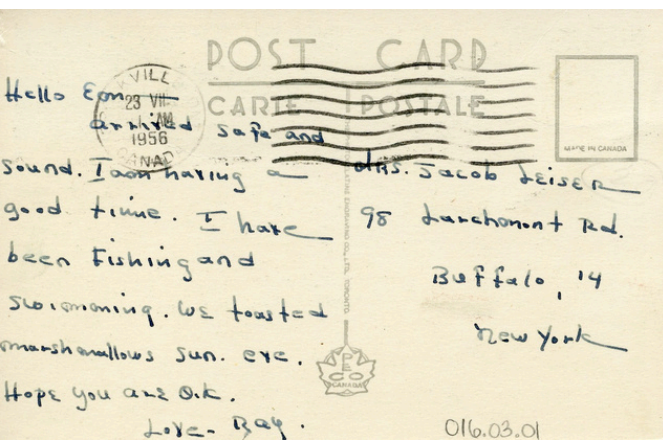 POST CARD
CARTE POSTALE
VILLE
23 VII
AM
1956
CANADA
MADE IN CANADA
Hello
arrived safe and
sound. I am having a
good time. I have
been Fishing and
swimming. We toasted
marshmallows Sun. eve.
Hope you are O.K.
Love - Ray.
Mrs. Jacob Leiser
98 Larchmont Rd.
Buffalo, 14
New York
ENGRAVING CO., LTD. TORONTO
PECO
CANADA
016.03.01